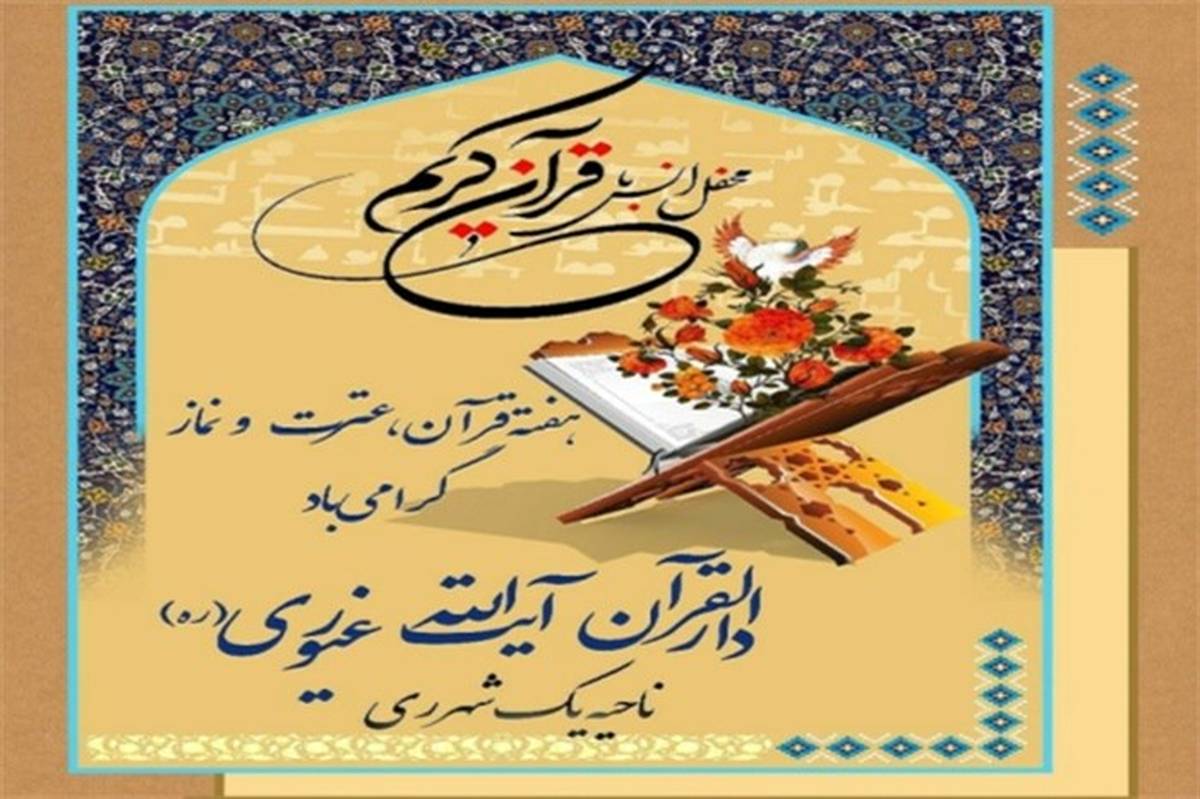 محفل انس با قرآن کریم
هفته قرآن، عترت و نماز
گرامی باد
دارالقرآن آیت الله غیوری (ره)
ناحیه یک شهرری